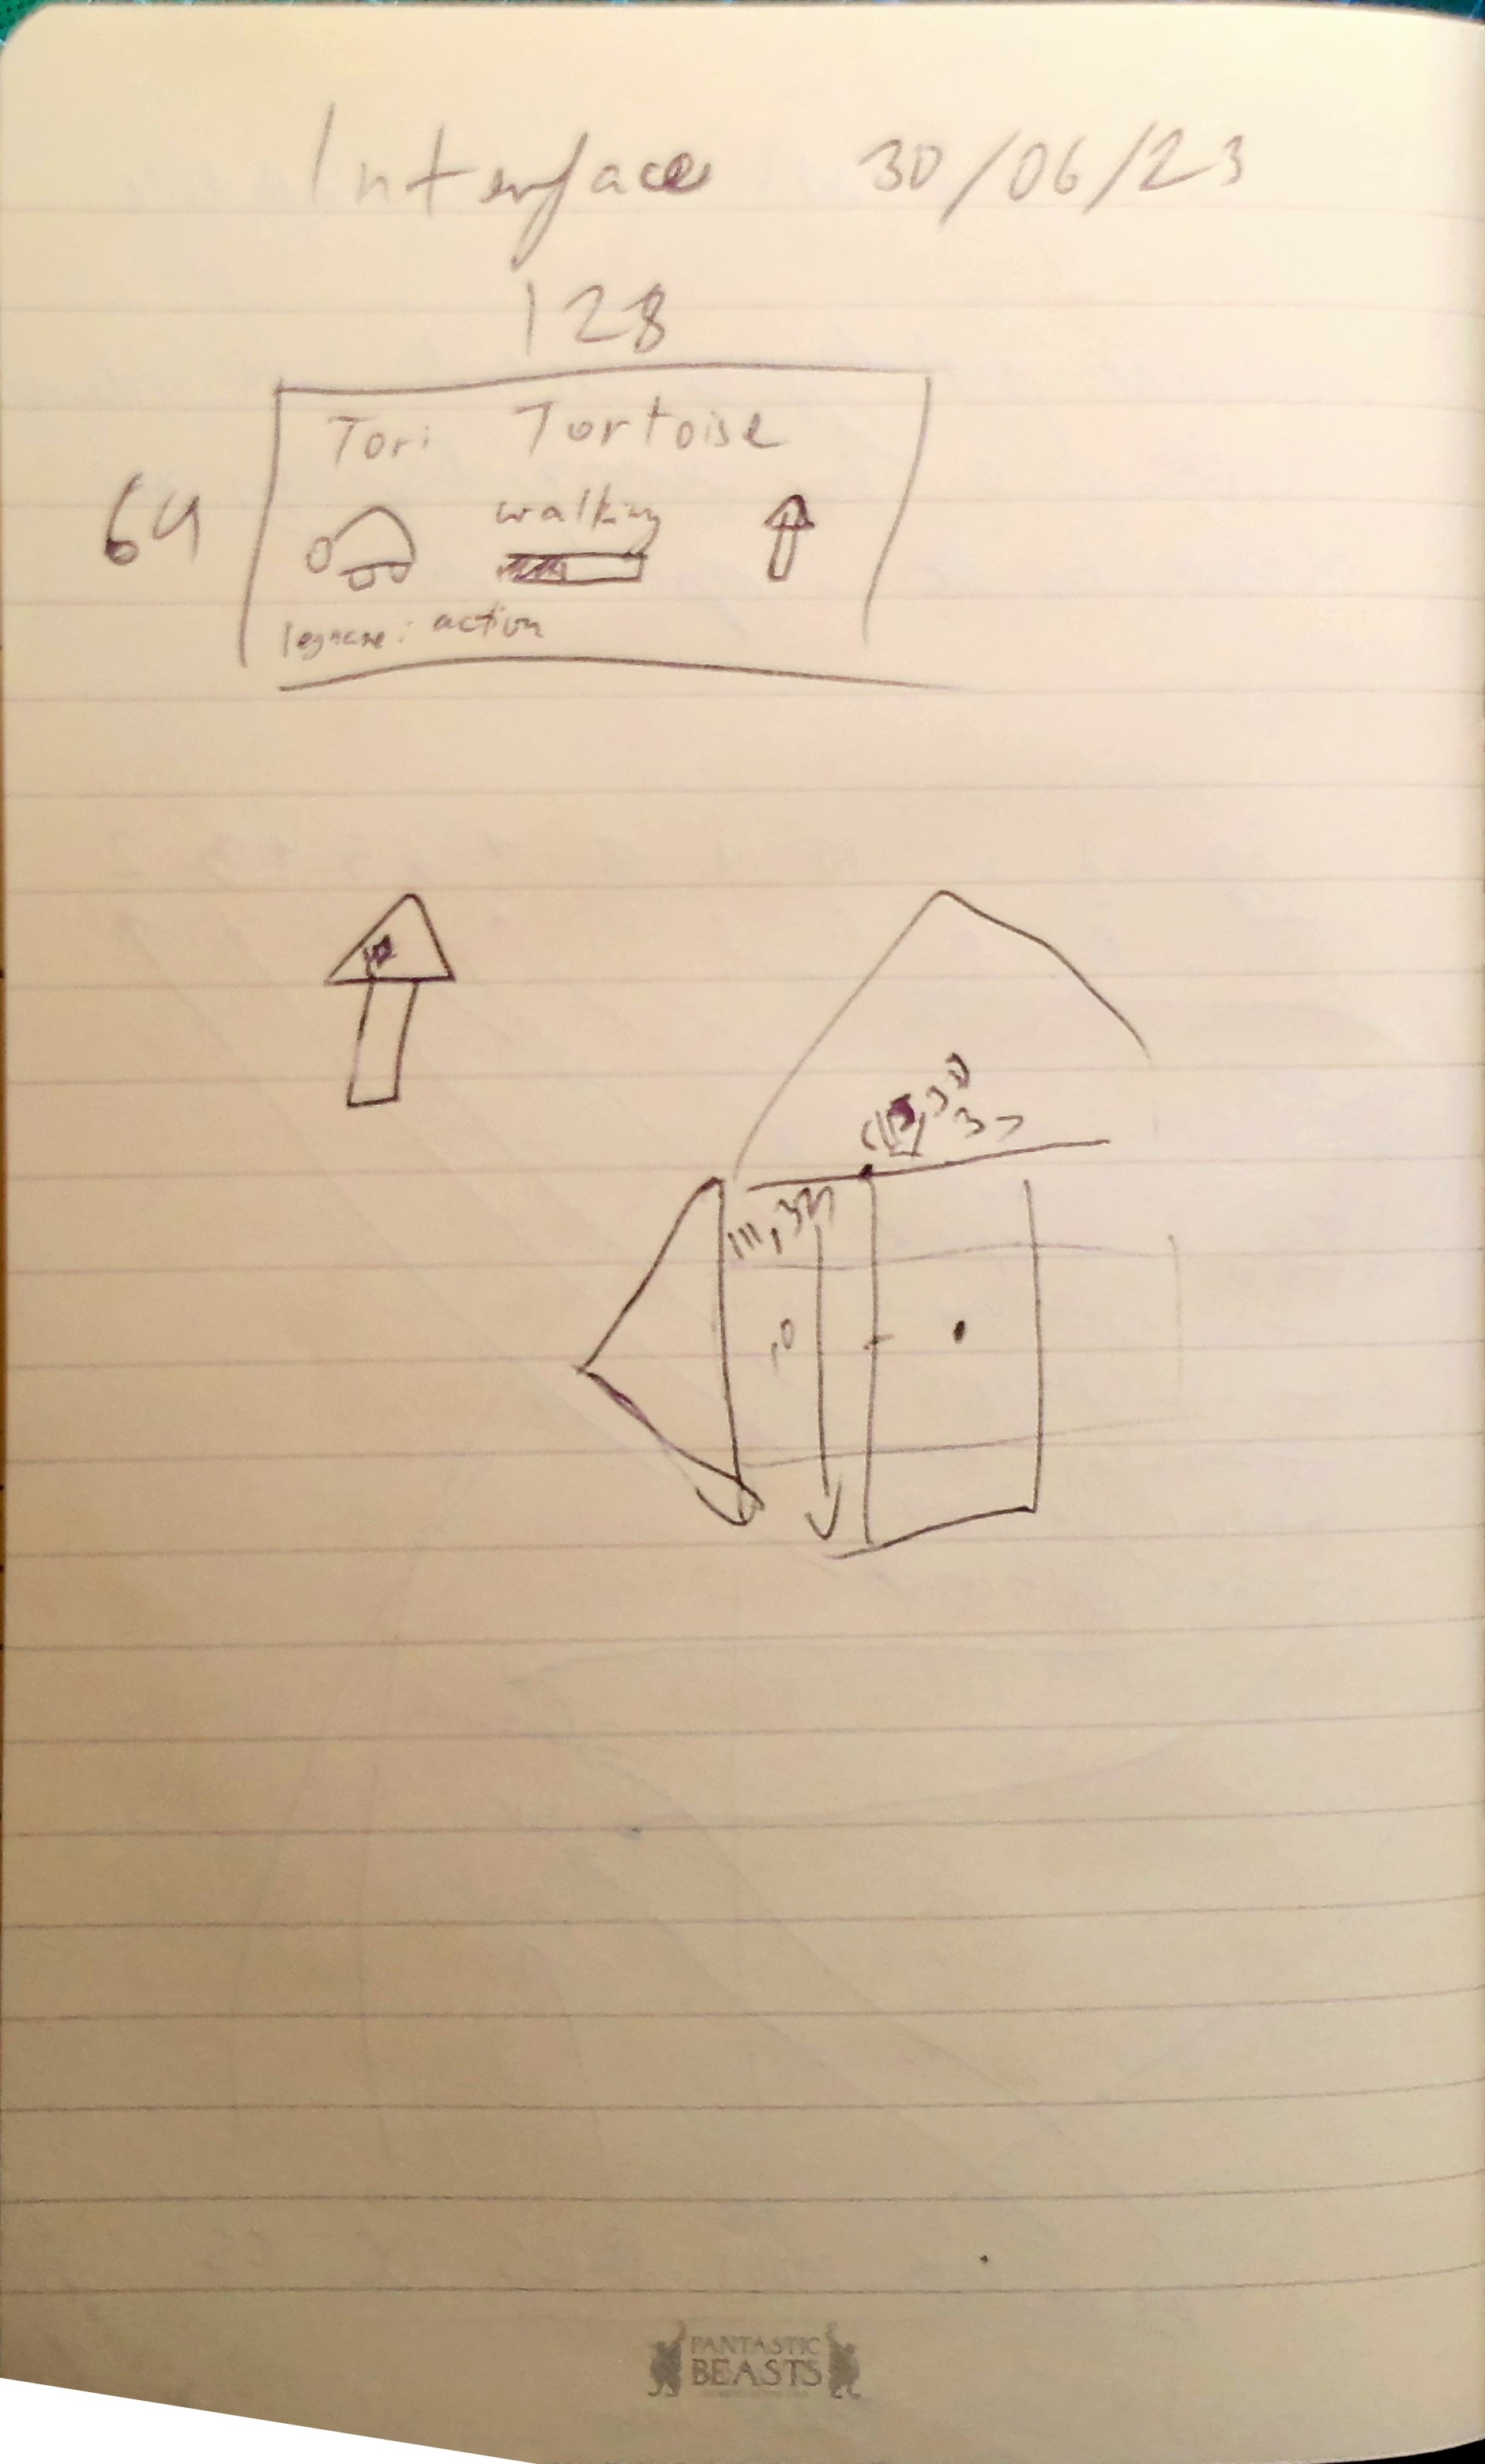 Interface 30/06/23
128
Tori Tortoise
64
walking
action
111, 37
10
FANTASTIC
BEASTS